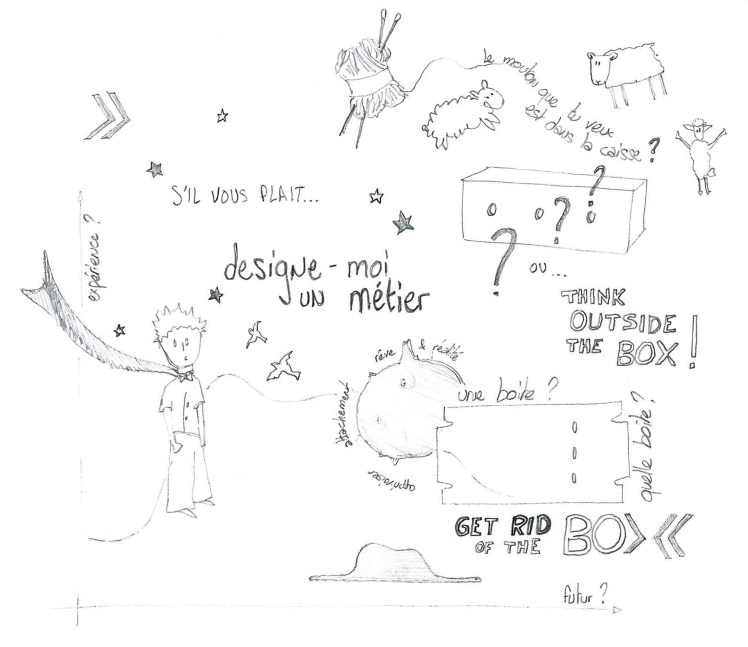 le mouton que tu veux
est dans la caisse ?
expérience ?
S'IL VOUS PLAIT...
? ? ?
ou...
designe-moi
UN métier
THINK
OUTSIDE
THE BOX !
rêve & réalité
attachement
apprivoiser
une boite ?
quelle boite ?
GET RID
OF THE BOX
futur ?